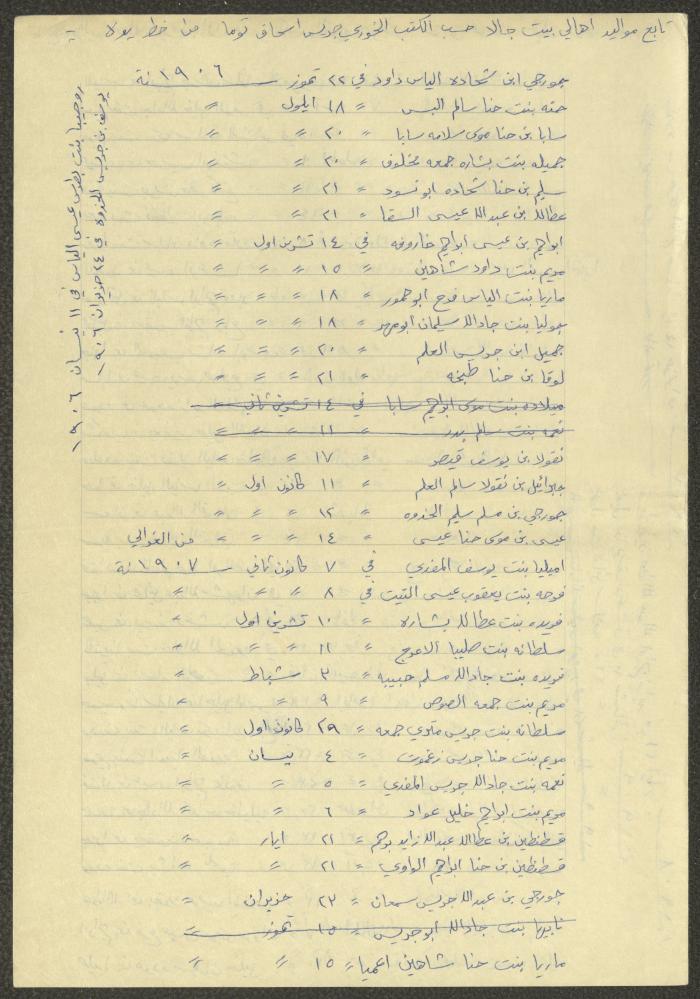 تابع مواليد اهالي بيت جالا حسب الكتب الخوري جريس اسحاق توما من خط يده
جورجي ابن شحاده الياس داود في ٢٢ تموز سنة ١٩٠٦
حنه بنت حنا سالم البس = ١٨ ايلول =
سابا بن حنا موسى سلامه سابا = ٢٠ = =
جميله بنت بشاره جمعه مخلوف = ٢٠ = =
سليم بن حنا شحاده ابو نسود = ٢١ = =
عطالله بن عبدالله عيسى السقا = ٢١ = =
ابراهيم بن عيسى ابراهيم خاروفه في ١٤ تشرين اول =
مريم بنت داود شاهين = ١٥ = = =
ماريا بنت الياس فرح ابو حمور = ١٨ = = =
جوليا بنت جادالله سليمان ابو مهر = ١٨ = = =
جميل ابن جريس العلم = ٢٠ = = =
لوقا بن حنا طبخه = ٢١ = = =
ميلاده بنت موسى ابراهيم سابا في ١٤ تشرين ثاني =
نعمه بنت سالم بدر = ١١ = = =
نقولا بن يوسف قيصر = ١٧ = = =
جبرائيل بن نقولا سالم العلم = ١١ كانون اول =
جورجي بن مسلم سليم الحذوه = ١٢ = = =
عيسى بن موسى حنا عيسى = ١٤ = = = من الغوالي
اميليا بنت يوسف المفدي في ٧ كانون ثاني سنة ١٩٠٧
فرحه بنت يعقوب عيسى التيت في ٨ = = =
فريده بنت عطالله بشاره = ١٠ تشرين اول =
سلطانه بنت صليبا الاعرج = ١١ = = =
فريده بنت جادالله مسلم حبيبه = ٣ شباط =
مريم بنت جمعه الصوص = ٩ = =
سلطانه بنت جريس متري جمعه = ٢٩ كانون اول =
مريم بنت حنا جريس زغموت = ٤ نيسان =
نعمه بنت جادالله جريس المفدي = ٥ = =
مريم بنت ابراهيم خليل عواد = ٦ = =
قسطنطين بن عطاالله عبدالله زايد برهم = ٢١ ايار =
قسطنطين بن حنا ابراهيم الراوي = ٢١ = =
جورجي بن عبدالله جريس سمعان = ٢٣ حزيران =
بنت جادالله ابو جريس = ١٥ تموز =
ماريا بنت حنا شاهين اعميا = ١٥ = =
روجينا بنت بطرس عيسى الياس في ١١ نيسان ١٩٠٦
يوسف بن جريس الحذوه في ٢٤ حزيران ١٩٠٦